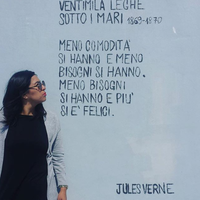 VENTIMILA LEGHE
SOTTO I MARI 1869-1870
MENO COMODITÀ
SI HANNO E MENO
BISOGNI SI HANNO.
MENO BISOGNI
SI HANNO E PIU'
SI E' FELICI.
JULES VERNE